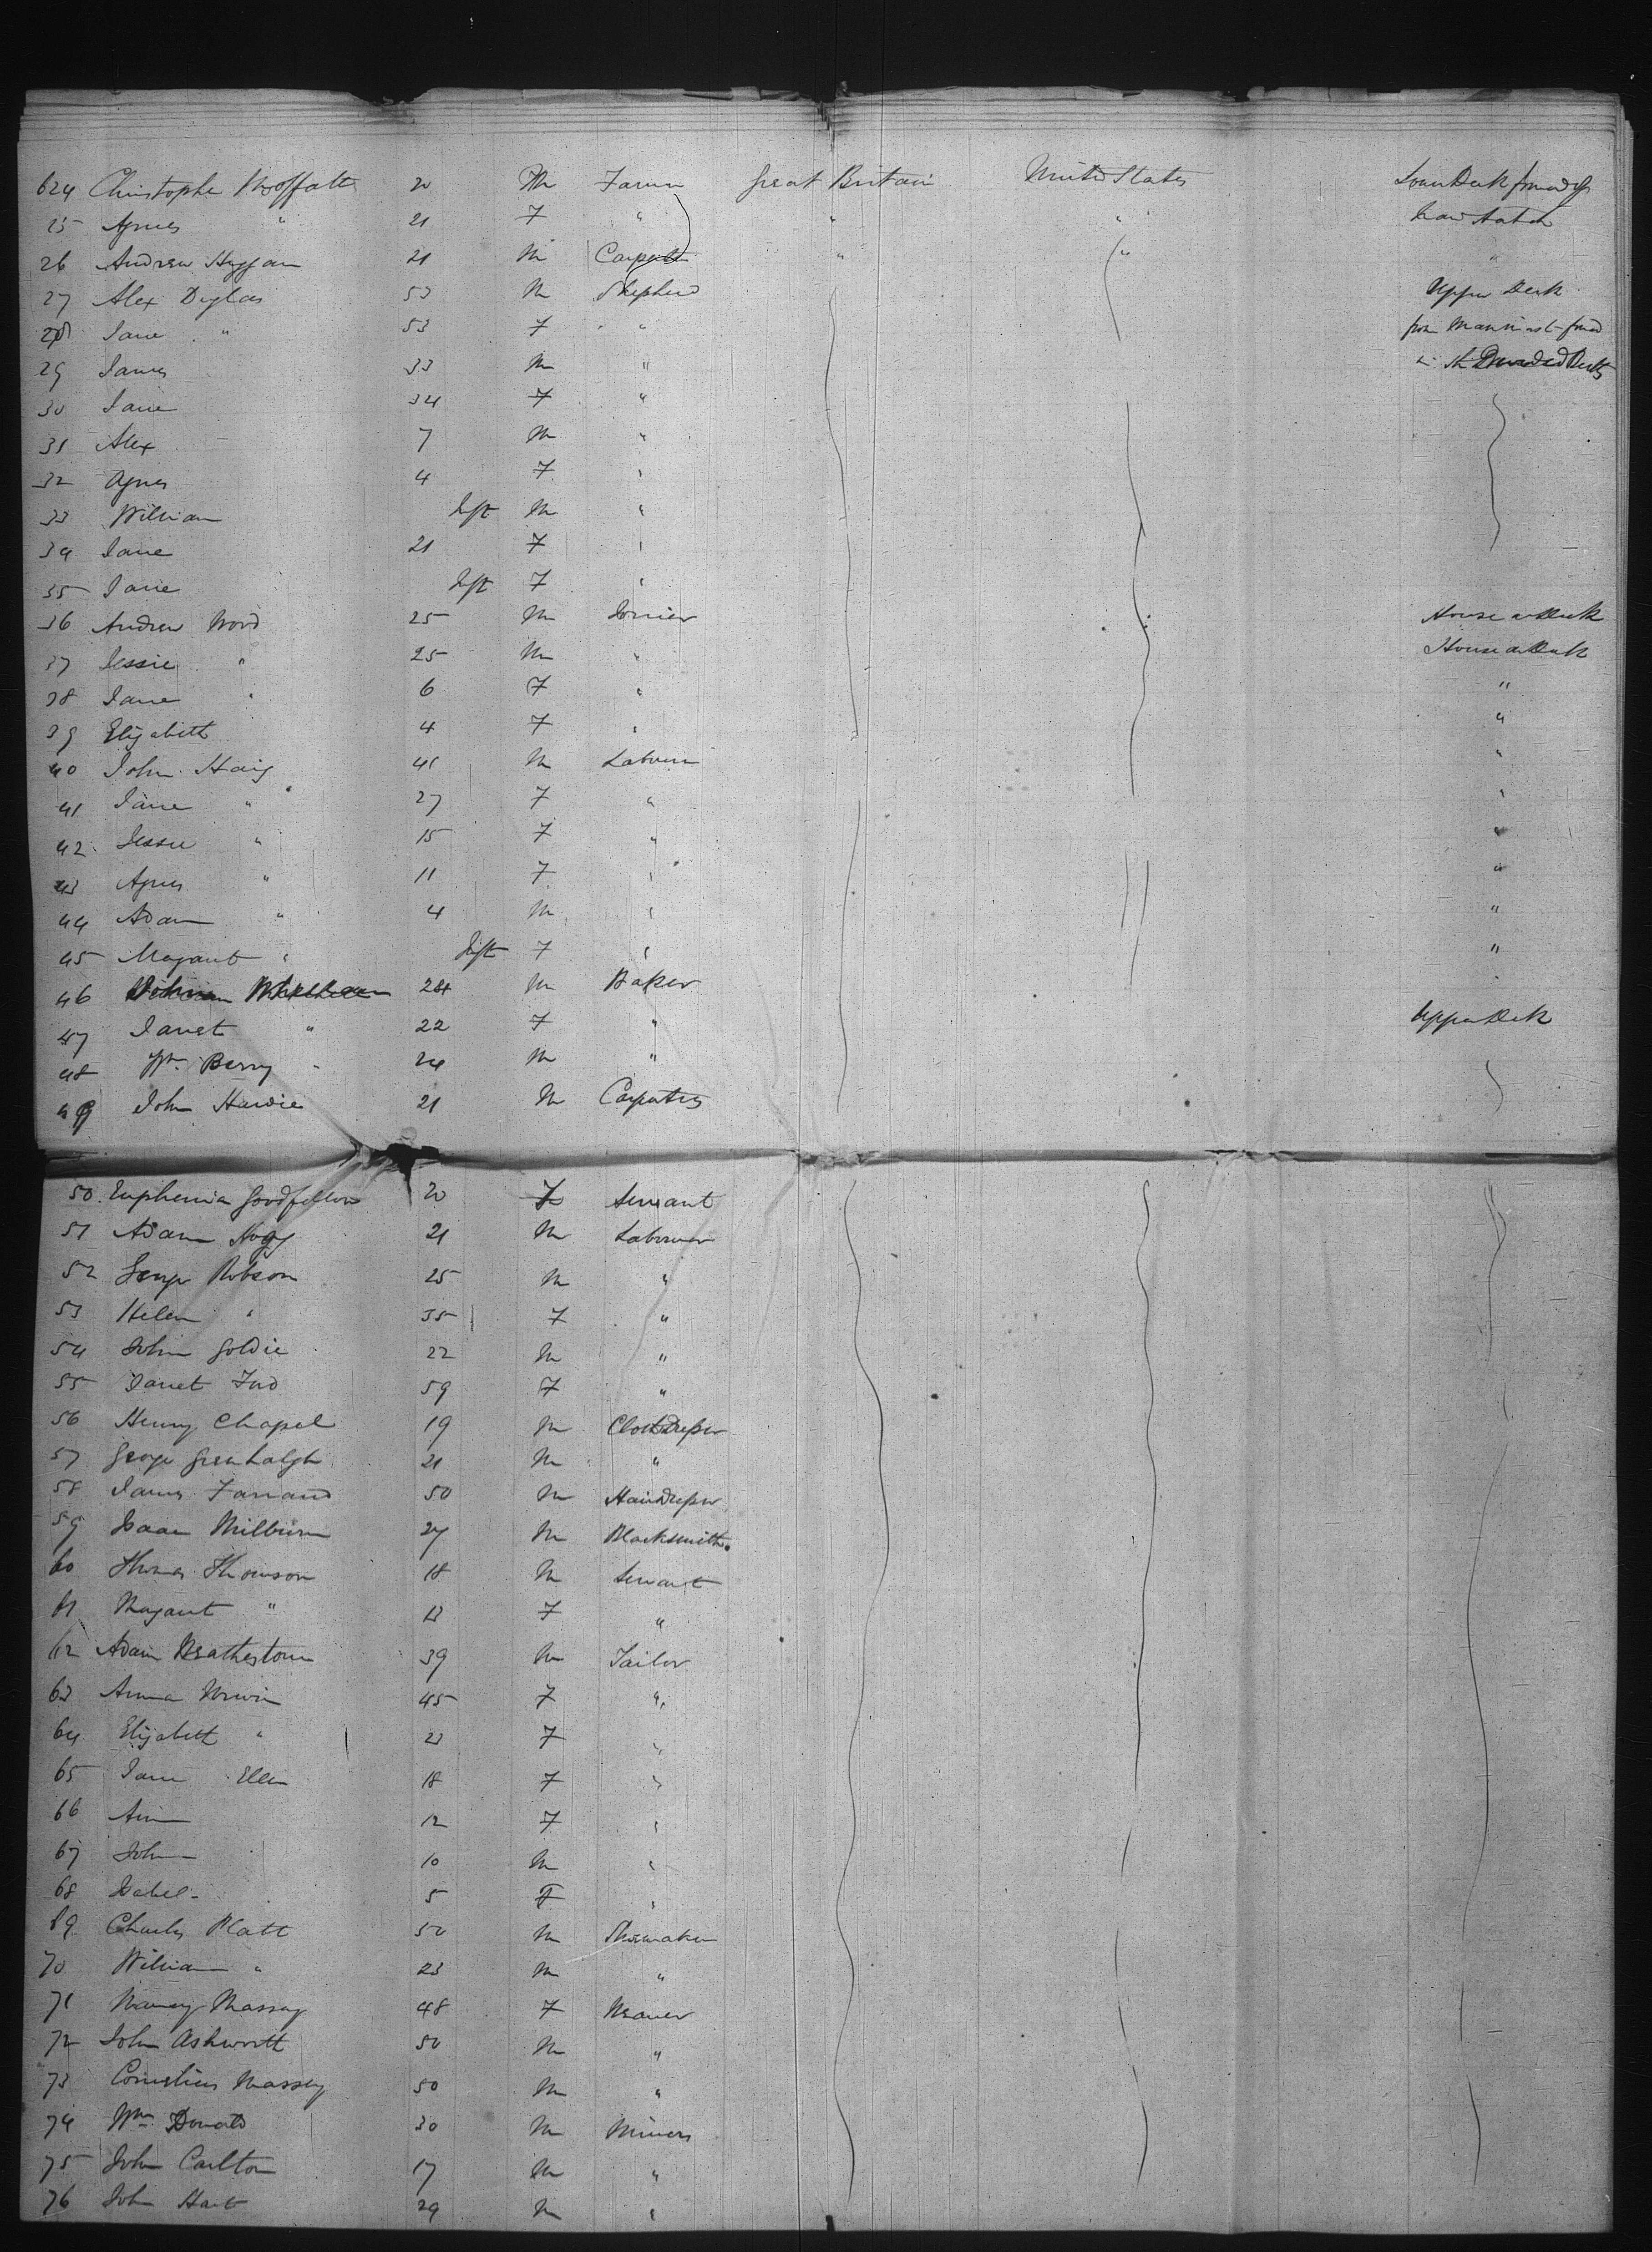 624 Christophe Moffatt 20 M Farmer Great Britain United States Lower Deck forward of
25 Agnes " 21 F " " " Main Hatch
26 Andrew Huggan 21 M Carpent " " "
27 Alex Duglas 53 M Shepherd Upper Deck
28 Jane " 53 F " from Mainmast forwd
29 James 33 M " in the Decks
30 Jane 34 F "
31 Alex 7 M "
32 Agnes 4 F "
33 William Inft M "
34 Jane 21 F "
35 Jane Inft F "
36 Andrew Word 25 M Joiner House on Deck
37 Jessie " 25 M " House on Deck
38 Jane " 6 F " "
39 Elizabeth 4 F " "
40 John Haig 41 M Labourer "
41 Jane " 27 F " "
42 Jessie " 15 F " "
43 Agnes " 11 F " "
44 Adam " 4 M " "
45 Magaret " Inft F " "
46 24 M Baker
47 Janet " 22 F " Upper Deck
48 Wm Berry 24 M "
49 John Hardie 21 M Carpenter
50 Euphemia Goodfellow 20 F Servant
51 Adam Hogg 21 M Labourer
52 George Robson 25 M "
53 Helen " 35 F "
54 John Goldie 22 M "
55 Janet 59 F "
56 Henry Chapel 19 M Clothdresser
57 George Greenhalgh 21 M "
58 James Farrand 50 M Hairdresser
59 Isaac Milburn 27 M Blacksmith
60 Thomas Thomson 18 M Servant
61 Magaret " 13 F "
62 Adam Weatherstone 39 M Tailor
63 Anna Urwin 45 F "
64 Elizabeth " 23 F "
65 Jane Ellen 18 F "
66 Ann 12 F "
67 John 10 M "
68 Isabel 5 F "
69 Charles Platt 50 M Shoemaker
70 William " 23 M "
71 Nancy Massey 48 F Weaver
72 John Ashworth 50 M "
73 Cornelius Massey 50 M "
74 Wm Donald 30 M Miners
75 John Carlton 17 M "
76 John Hart 29 M "